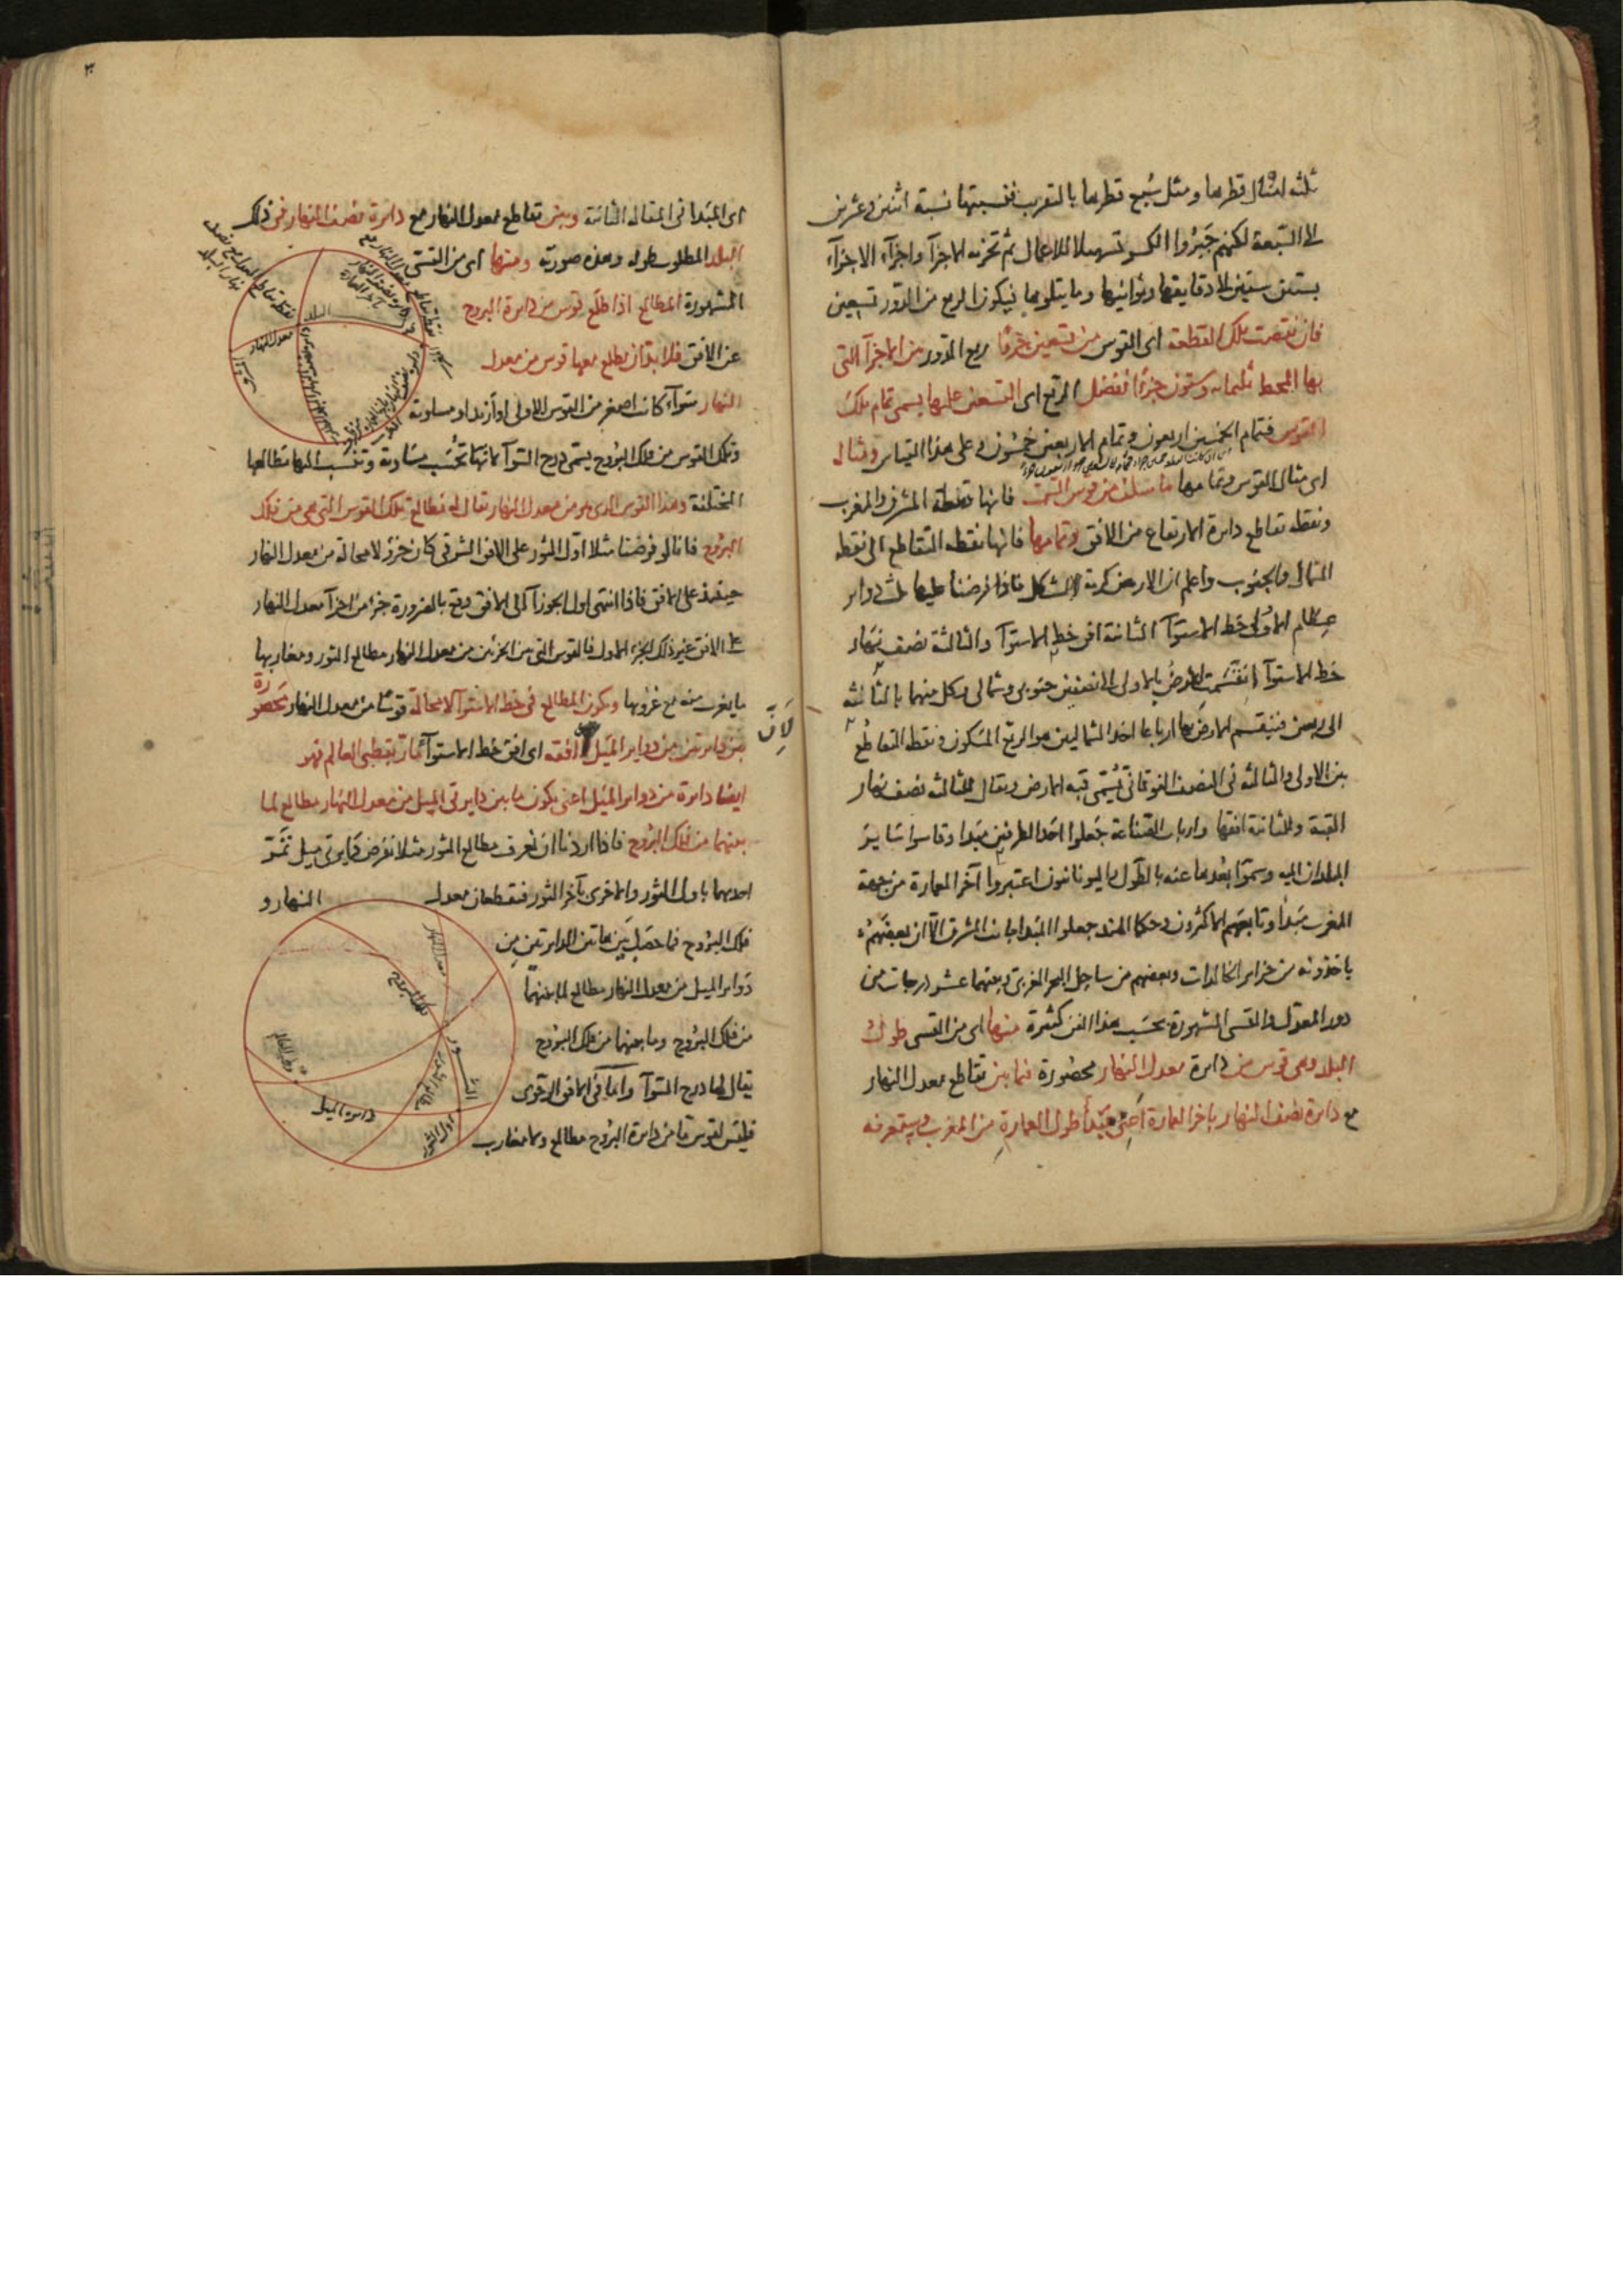 ثلثه امثال قطرها ومثل سُبع قطرها بالتقريب فنسبتها نسبة اثنين وعشرين
الى السَّبعة لكنهم جَبَرُوا الكسر تسهيلا للاعمال ثم تجزيه الاجزآ واجزآء الاجزآء
بستين ستين الى دقايقها وثوانيها وما يتلوها فيكون الربع من الدَّور تسعين
فان نقصت تلك القطعة اى القوس من تسعين جزءًا ربع الدَّور من الاجزآ التى
بها المحيط ثلثمائه وستون جزءًا ففضل الربع اى التسعين عليها يسمى تمام تلك
القوس فتمام الخمسين اربعون وتمام الاربعين خمسُون وعلى هذا القياس ومثاله
اى مثال القوس وتمامها ما سلف من قوس السَّمت فانها نقطة المشرق والمغرب
ونقطه تقاطع دايرة الارتفاع من الافق وتمامها فانها نقطه التقاطع الى نقطه
الشمال والجنوب واعلم ان الارض كرية الشكل فاذا فرضنا عليها ثلث دواير
عِظام الاولى خط الاستوآ الثانية افق خط الاستوآ والثالثة نصف نهار
خط الاستوآ انقسَمت الارضُ بالاولى الى نصفين جنوبى وشمالى وكل منهما بالثالثه
الى ربعين فينقسم الارض بها ارباعا احد الشماليين هو الربع المسكون ونقطه التقاطُع
بين الاولى والثالثه فى النصف الفوقانى يُسَمّى قبه الارض ويقال للثالثه نصف نهار
القبة وللثانية افقها وارباب الصّناعة جَعلوا احَد الطرفين مَبدا وقاسوا سَاير
البلدان اليه وسمّوا بُعْدها عنه بالطول واليونانيون اعتبروا آخر العمارة من جهة
المغرب مَبدأ وتابعَهم الاكثرون وحكما الهند جعلوا المَبدا جانب المشرق الّا ان بعضَهُم
ياخذونه من جزاير الخالدات وبعضهم من ساحِل البحر الغربى وبينهما عشر درجات من
دور المعدّل والقسى المشهورة بحسَب هذا الفن كثيرة منها اى من القسى طول
البلد وهى قوس من دايرة معدل النهار محصُورة فيما بين تقاطع معدل النهار
مع دايرة نصف النهار باخر العمارة اعنى مَبدأ طول العمارة من المغرب وستعرفه
٣
اى المَبدا فى المقاله الثانية وبين تقاطع معدل النهار مع دايرة نصف النهار فى ذلك
البلد المطلوب طوله وهذه صورته ومنها اى من القسى
المشهورة المطالع اذا طلَع قوس من دايرة البروج
عن الافق فلا بد وان يطلع معها قوس من معدل
النهار سَوآء كانت اصغر من القوس الاولى او ازيد او مساوية
وتلك القوس من فلك البُروج يسمى درج السّوآ لانها تُحْسَب متساوية وتنسب اليها مطالعها
المختلفة وهذا القوس الذى هو من معدل النهار يقال له مطالع تلك القوس التى هى من فلك
البرُوج فانا لو فرضنا مثلا اوّل الثور على الافق الشرقى كان جزء لا محالة من معدل النهار
حينئذ على الافق فاذا انتهى اول الجوزآ الى الافق وقع بالضرورة جزء من اجزآ معدل النهار
على الافق غير ذلك الجزء الاول فالقوس التى بين الجزئين من معدل النهار مطالع الثور ومغاربها
ما يغرب منه مع غروبها ويكون المطالع فى خط الاستوآ لا محالة قوسًا من معدل النهار محصورة
بين دايرتين من دواير الميَل لان افقه اى افق خط الاستوآ مارّ بقطبى العالم فهو
ايضًا دايرة من دواير الميَل اعنى يكون ما بين دايرتى الميل من معدل النهار مطالع لما
بينهما من فلك البُروج فاذا اردنا ان نعرف مطالع الثور مثلا نفرض دايرتى ميل تمرّ
احديهما باول الثور والاخرى بآخر الثور فتقطعان معدل النهار و
فلك البُروج فما حصَل بَين هاتين الدايرتين من
دَواير الميل من معدل النهار مطالع لما بينهما
من فلك البُروج وما بينهما من فلك البُروج
يقال لها درج السّوآ وامّا فى الافق الرحوى
فليس لقوس ما من دايرة البُروج مطالع ولا مغارب
البلد
معدل النهار
معدل النهار
فلك البروج
قطب العالم
دايرة الميل
اول الثور